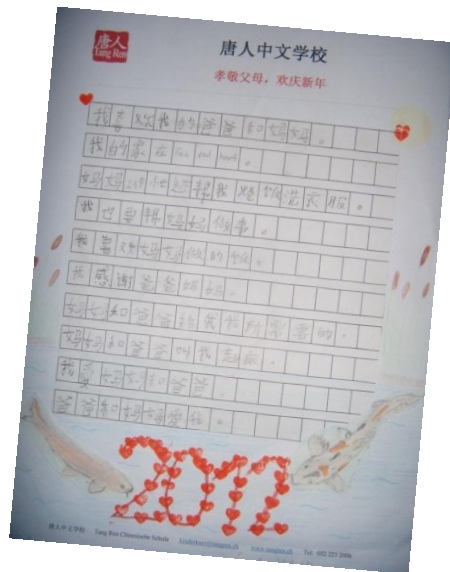 唐人
Tang Ren
唐人中文学校
孝敬父母，欢庆新年
我喜欢我的爸爸和妈妈。
我的家在
妈妈 帮我烧饭洗衣服。
我也要帮妈妈做事。
我喜欢妈妈做的饭。
我感谢爸爸妈妈。
妈妈和爸爸给我
妈妈和爸爸叫我起床。
我爱妈妈和爸爸
爸爸和妈妈爱我。
2012
唐人中文学校 Tang Ren Chinesische Schule Tel: